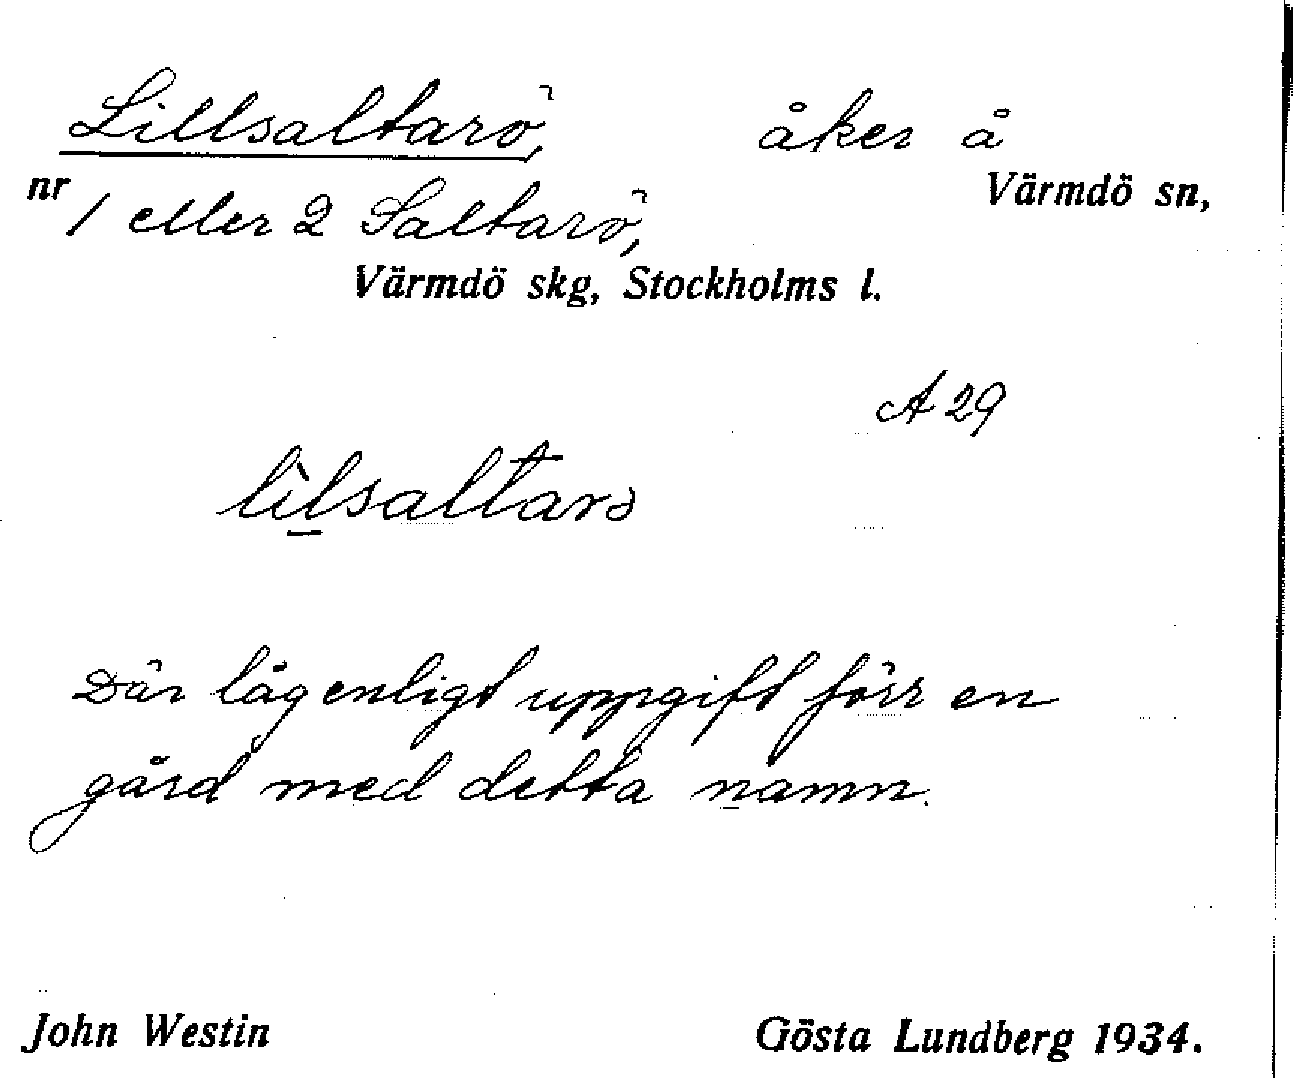 Lillsaltarö, åker å
nr 1 eller 2 Saltarö, Värmdö sn,
Värmdö skg, Stockholms l.
A 29
Där låg enligt uppgift förr en
gård med detta namn.
John Westin Gösta Lundberg 1934.